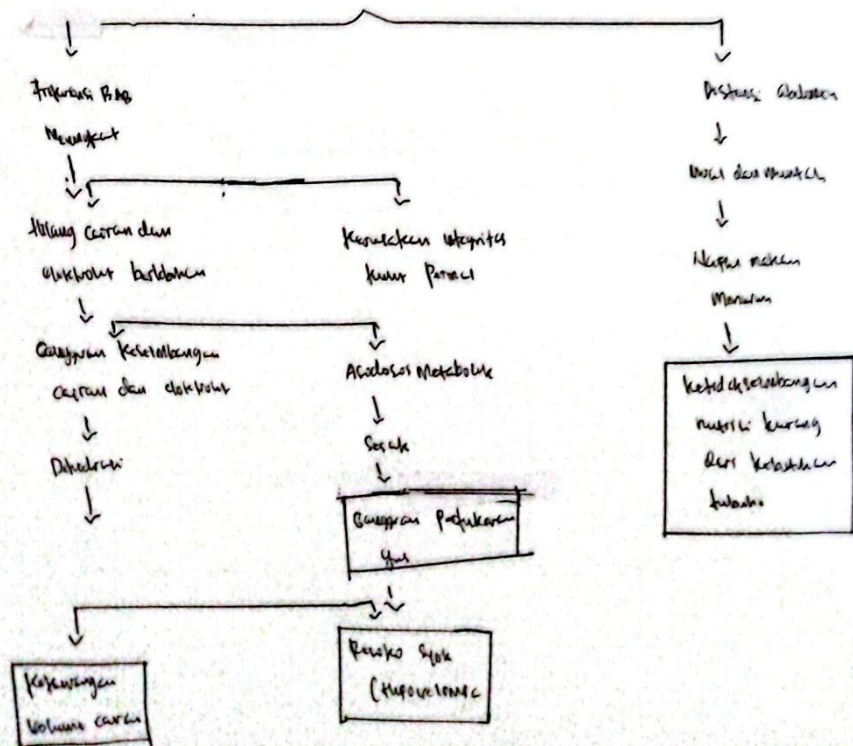 Frekuensi BAB
Meningkat
Hilang cairan dan
elektrolit berlebihan
Kerusakan integritas
kulit perianal
Gangguan keseimbangan
cairan dan elektrolit
Asidosis Metabolik
Dehidrasi
Sesak
Gangguan Pertukaran
gas
Kekurangan
Volume cairan
Resiko Syok
(Hipovolemic
Distensi abdomen
Mual dan muntah
Nafsu makan
Menurun
Ketidakseimbangan
nutrisi kurang
dari kebutuhan
tubuh